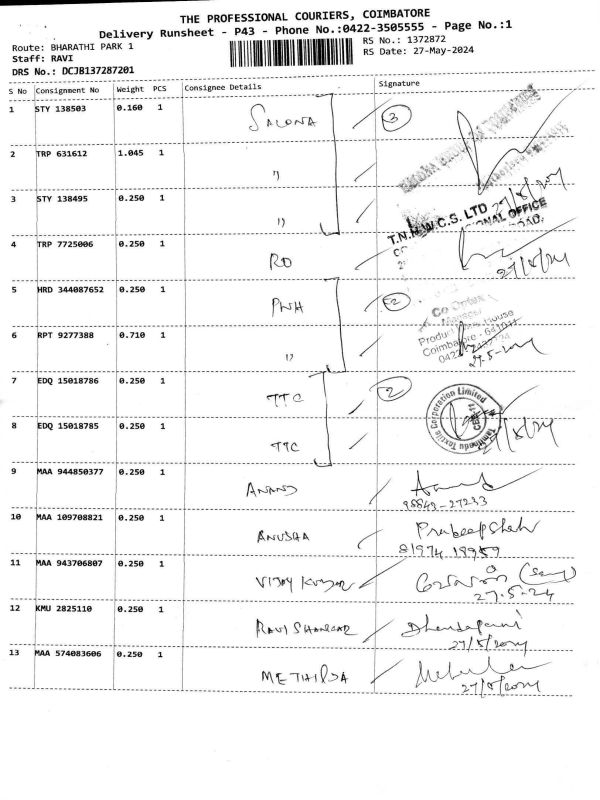 THE PROFESSIONAL COURIERS, COIMBATORE
Delivery Runsheet - P43 - Phone No.:0422-3505555 - Page No.:1
Route: BHARATHI PARK 1
RS No.: 1372872
Staff: RAVI
RS Date: 27-May-2024
DRS No.: DCJB137287201
S No Consignment No Weight PCS Consignee Details Signature
1 STY 138503 0.160 1 SALONA 3
2 TRP 631612 1.045 1 "
3 STY 138495 0.250 1 " 27/5/2024
T.N.H.W.C.S. LTD
REGIONAL OFFICE
4 TRP 7725006 0.250 1 RO 27/5/2024
5 HRD 344087652 0.250 1 PWH 2
Co Optex
Manager
House
6 RPT 9277388 0.710 1 "
Coimbatore - 641011
27-5-2024
7 EDQ 15018786 0.250 1 TTC 2
Tamilnadu Textile Corporation Limited
8 EDQ 15018785 0.250 1 TTC 27/5/24
9 MAA 944850377 0.250 1 ANAND Anand
98843-27233
10 MAA 109708821 0.250 1 ANUSHA Prabeep Shah
81974 18959
11 MAA 943706807 0.250 1 VIJAY KUMAR
27.5-24
12 KMU 2825110 0.250 1 RAVI SHANKAR Dhandapani
27/5/2024
13 MAA 574083606 0.250 1 METHILDA
27/5/2024